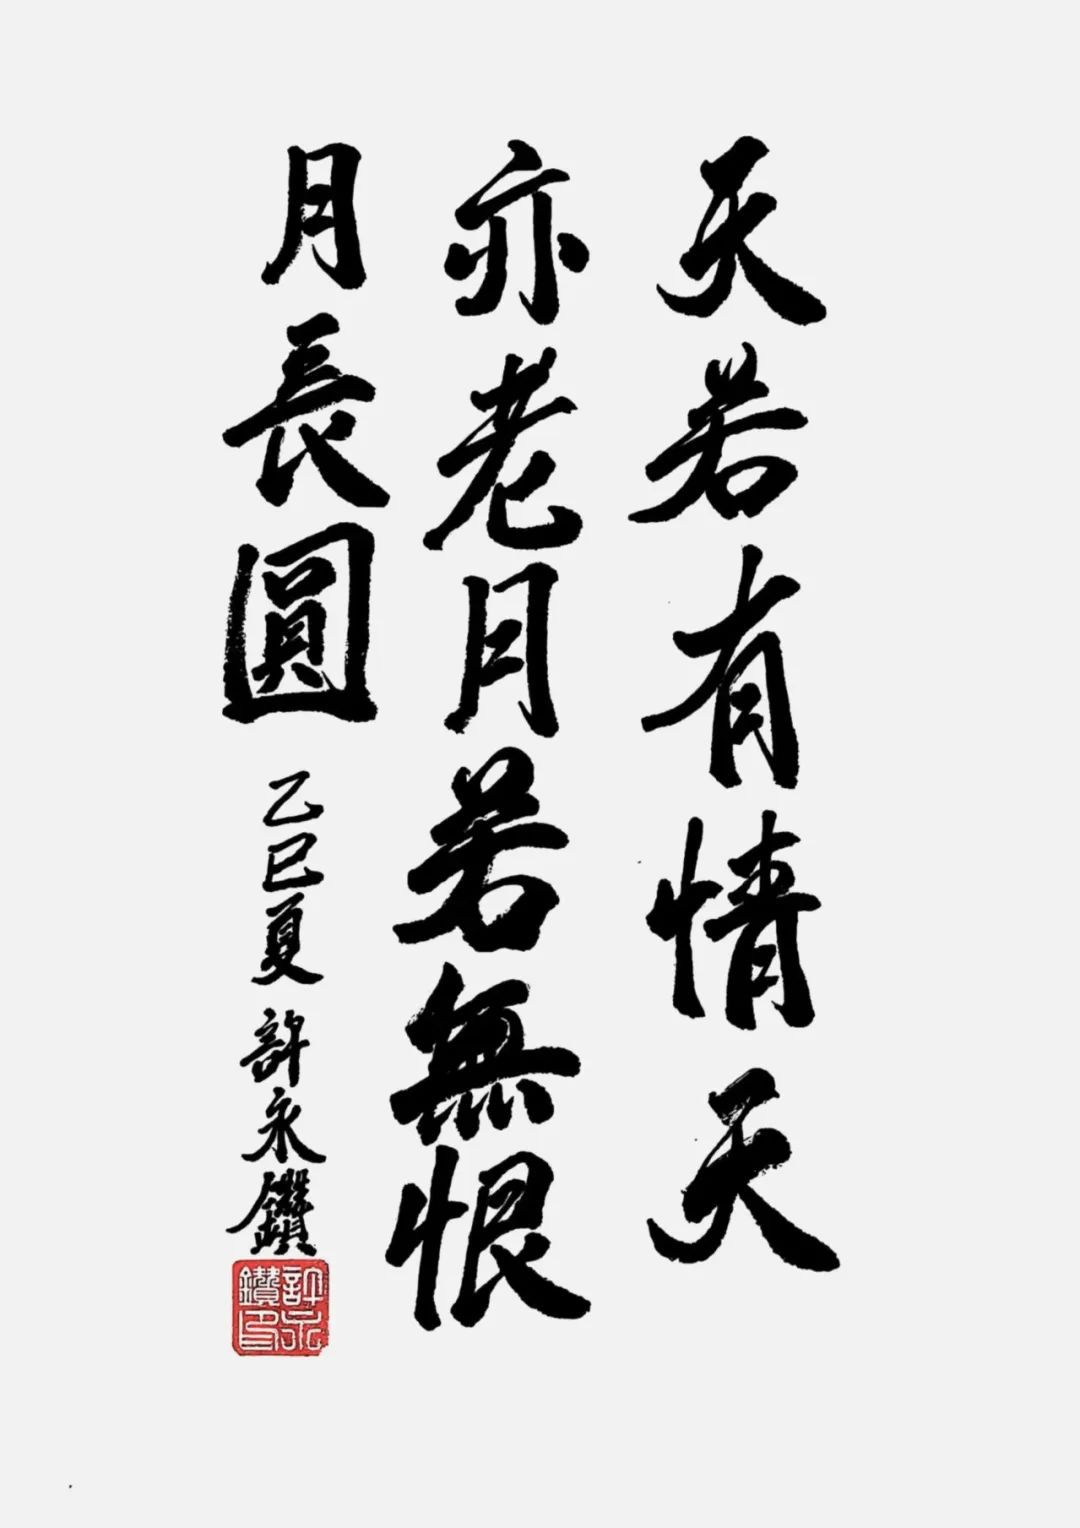 天若有情天
亦老月若無恨
月長圓
乙巳夏 許永鑽
許永鑽印